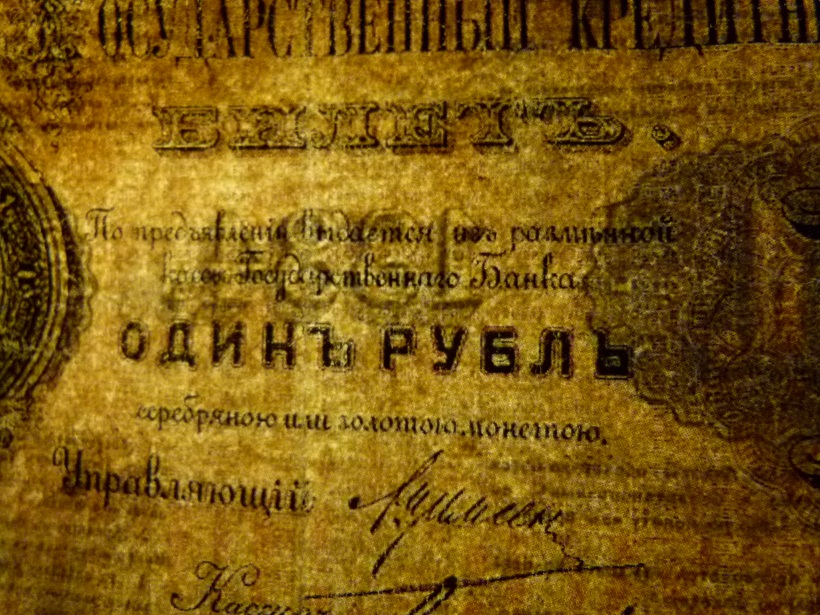 ОСУДАРСТВЕННЫЙ КРЕДИТН
БИЛЕТЪ.
По предъявленіи выдается изъ размѣнной
кассы Государственнаго Банка
ОДИНЪ РУБЛЬ
серебряною или золотою монетою.
Управляющій
Кассир